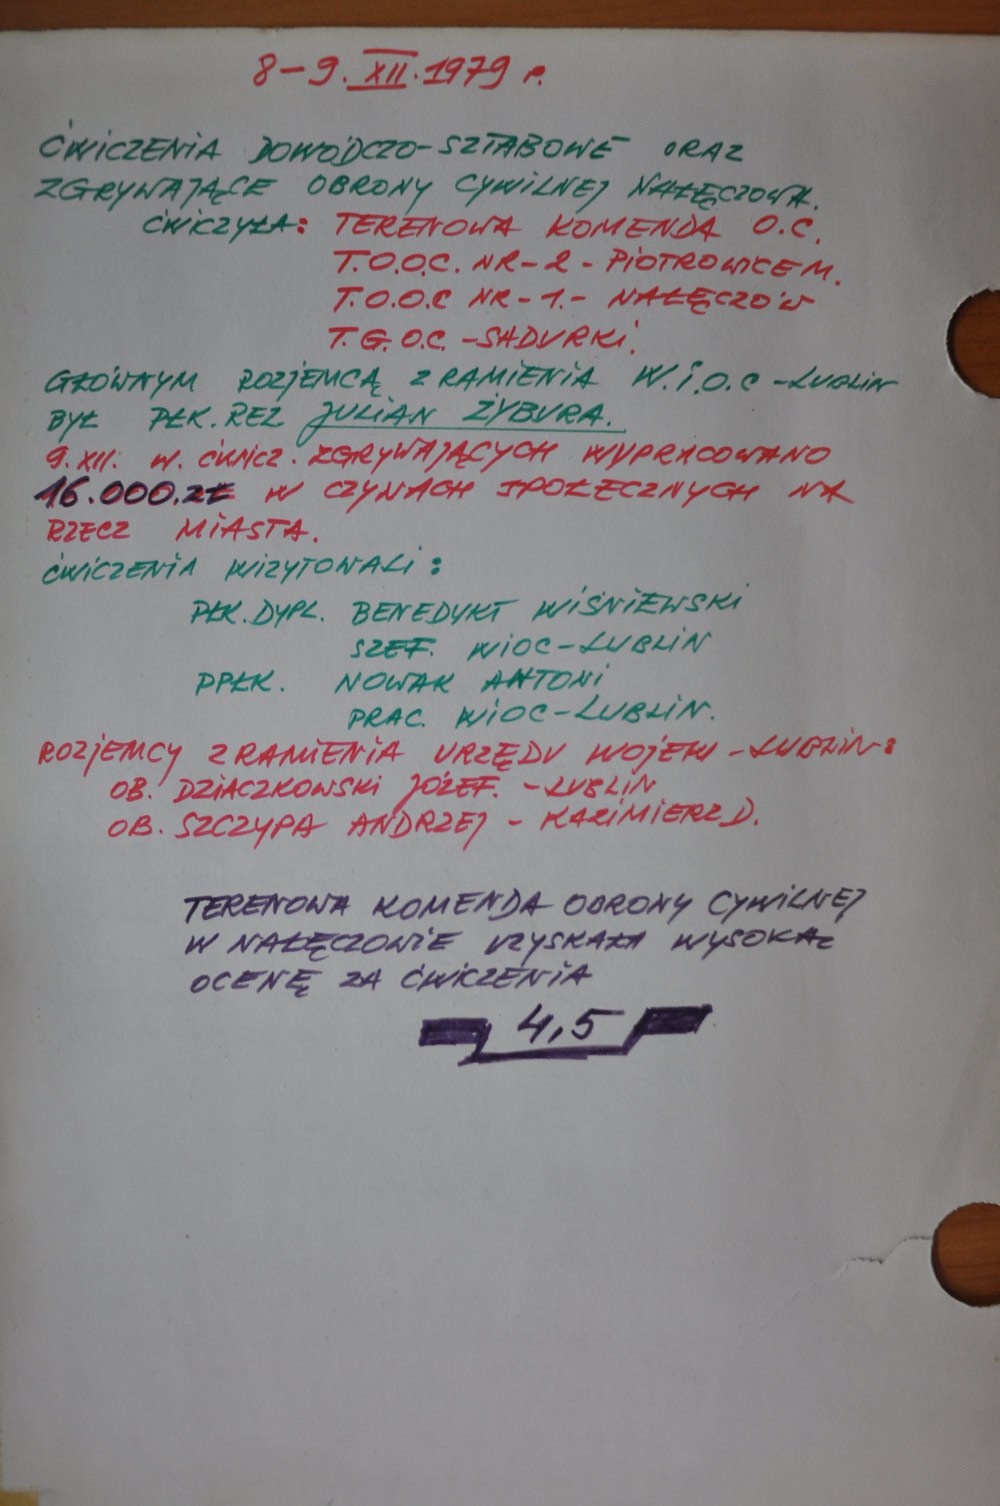 8-9. XII. 1979 r.
ĆWICZENIA DOWÓDCZO-SZTABOWE ORAZ
ZGRYWAJĄCE OBRONY CYWILNEJ NAŁĘCZOWA.
ĆWICZYŁA: TERENOWA KOMENDA O.C.
T.O.O.C. NR-2 - PIOTROWICE M.
T.O.O.C NR-1.- NAŁĘCZÓW
T.G.O.C. -SADURKI.
GŁÓWNYM ROZJEMCĄ Z RAMIENIA W.I.O.C -LUBLIN
BYŁ PŁK. REZ JULIAN ŻYBURA.
9.XII. W. ĆWICZ. ZGRYWAJĄCYCH WYPRACOWANO
16.000.ZŁ W CZYNACH SPOŁECZNYCH NA
RZECZ MIASTA.
ĆWICZENIA WIZYTOWALI:
PŁK. DYPL. BENEDYKT WIŚNIEWSKI
SZEF. WIOC-LUBLIN
PPŁK. NOWAK ANTONI
PRAC. WIOC-LUBLIN.
ROZJEMCY Z RAMIENIA URZĘDU WOJEW -LUBLIN:
OB. DZIACZKOWSKI JÓZEF. -LUBLIN
OB. SZCZYPA ANDRZEJ - KAZIMIERZ D.
TERENOWA KOMENDA OBRONY CYWILNEJ
W NAŁĘCZOWIE UZYSKAŁA WYSOKĄ
OCENĘ ZA ĆWICZENIA
4,5